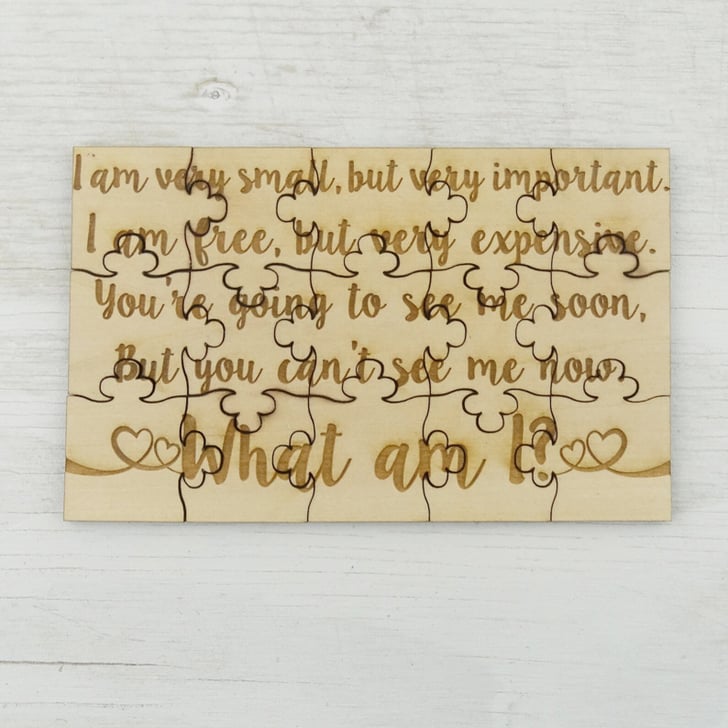 I am very small, but very important.
I am free, but very expensive.
You're going to see me soon,
But you can't see me now.
What am I?